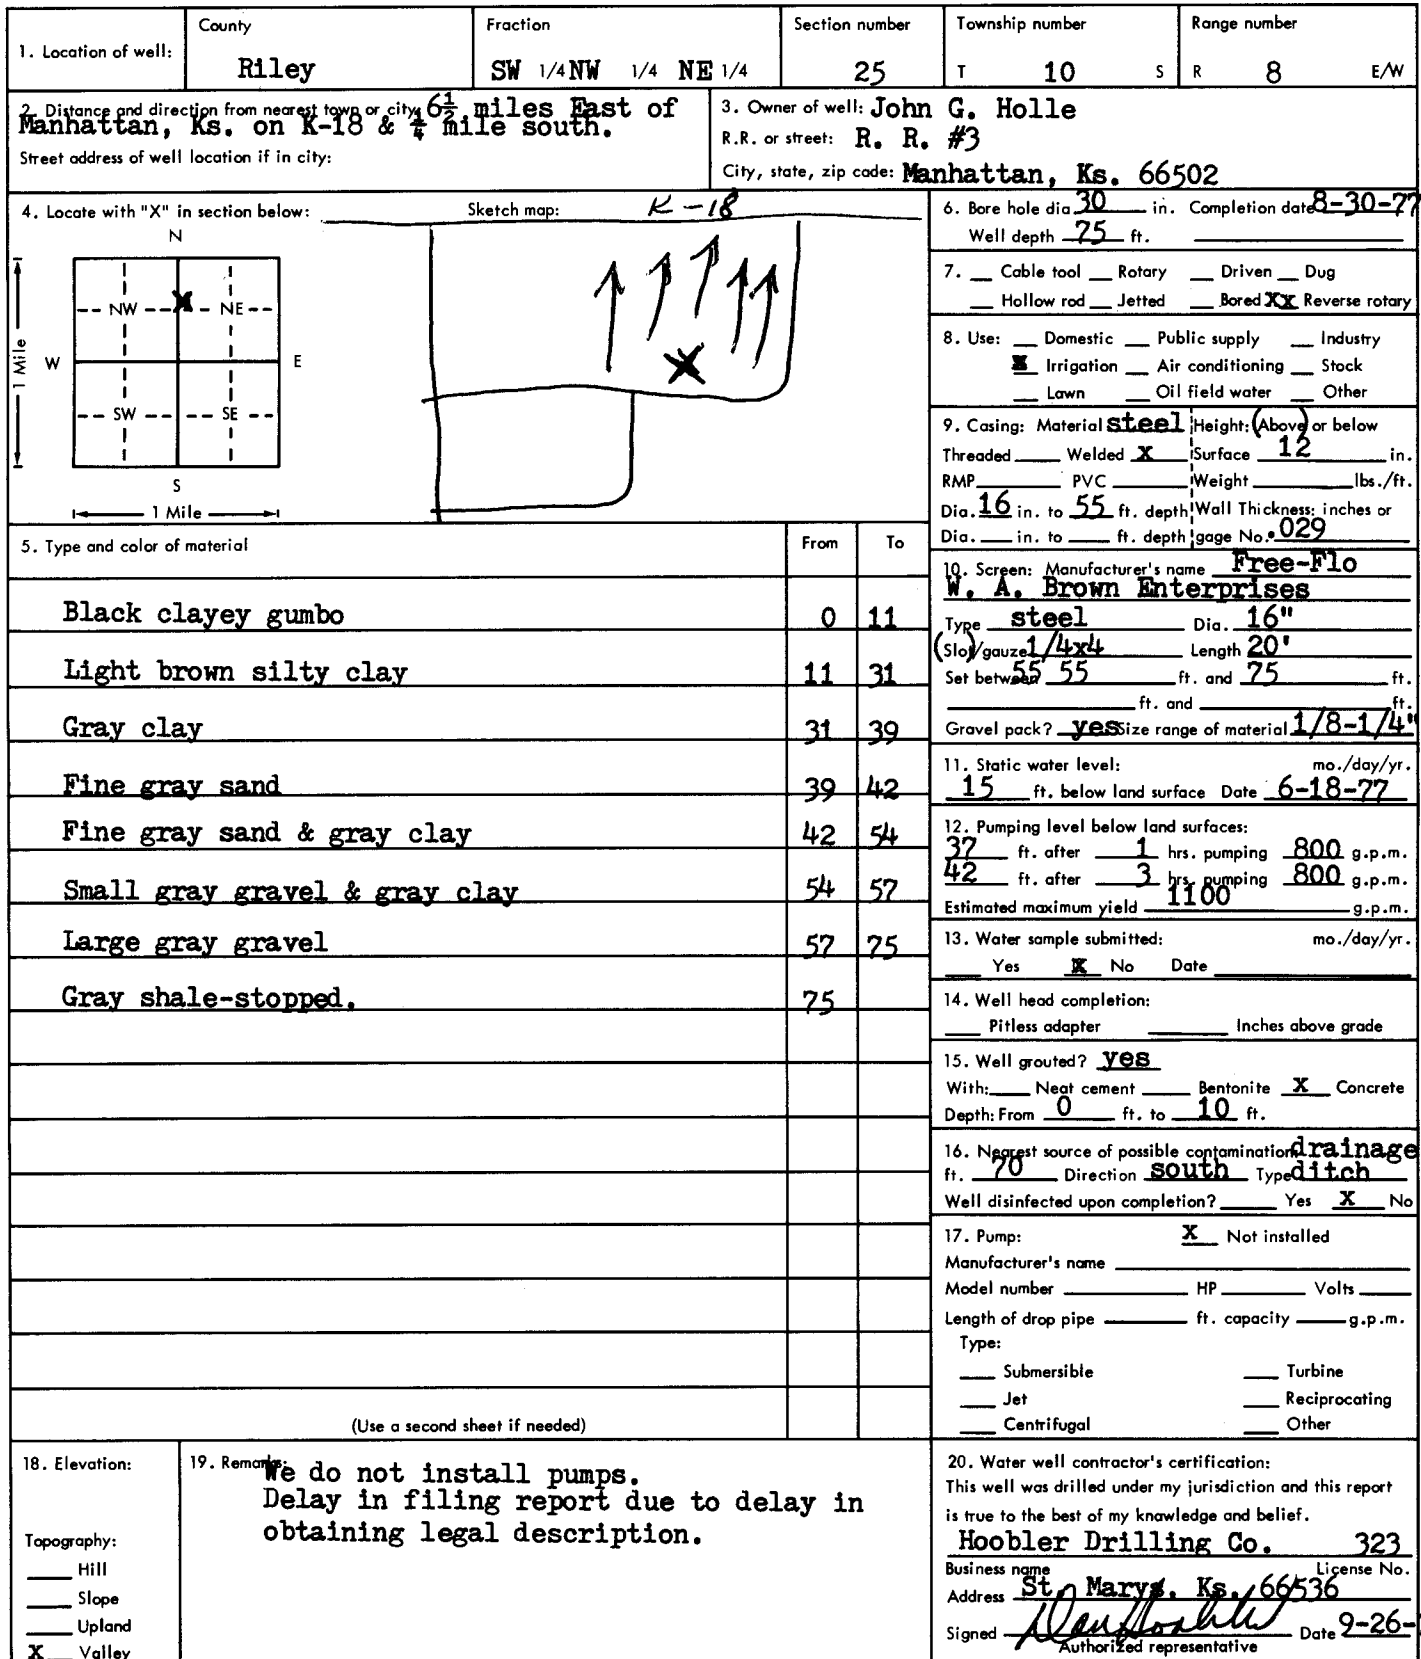 County Fraction Section number Township number Range number
1. Location of well: Riley SW 1/4 NW 1/4 NE 1/4 25 T 10 S R 8 E/W
2. Distance and direction from nearest town or city: 6½ miles East of
Manhattan, Ks. on K-18 & ¼ mile south.
Street address of well location if in city:
3. Owner of well: John G. Holle
R.R. or street: R. R. #3
City, state, zip code: Manhattan, Ks. 66502
4. Locate with "X" in section below: Sketch map: K-18
N
NW NE
W E
SW SE
S
1 Mile
1 Mile
X
X
5. Type and color of material From To
Black clayey gumbo 0 11
Light brown silty clay 11 31
Gray clay 31 39
Fine gray sand 39 42
Fine gray sand & gray clay 42 54
Small gray gravel & gray clay 54 57
Large gray gravel 57 75
Gray shale-stopped. 75
(Use a second sheet if needed)
6. Bore hole dia 30 in. Completion date 8-30-77
Well depth 75 ft.
7. Cable tool Rotary Driven Dug
Hollow rod Jetted Bored XX Reverse rotary
8. Use: Domestic Public supply Industry
X Irrigation Air conditioning Stock
Lawn Oil field water Other
9. Casing: Material steel Height: (Above) or below
Threaded Welded X Surface 12 in.
RMP PVC Weight lbs./ft.
Dia. 16 in. to 55 ft. depth Wall Thickness: inches or
Dia. in. to ft. depth gage No. .029
10. Screen: Manufacturer's name Free-Flo
W. A. Brown Enterprises
Type steel Dia. 16"
(Slot)/gauze 1/4x4 Length 20'
Set between 55 55 ft. and 75 ft.
ft. and ft.
Gravel pack? yes Size range of material 1/8-1/4"
11. Static water level: mo./day/yr.
15 ft. below land surface Date 6-18-77
12. Pumping level below land surfaces:
37 ft. after 1 hrs. pumping 800 g.p.m.
42 ft. after 3 hrs. pumping 800 g.p.m.
Estimated maximum yield 1100 g.p.m.
13. Water sample submitted: mo./day/yr.
Yes X No Date
14. Well head completion:
Pitless adapter Inches above grade
15. Well grouted? yes
With: Neat cement Bentonite X Concrete
Depth: From 0 ft. to 10 ft.
16. Nearest source of possible contamination: drainage
ft. 70 Direction south Type ditch
Well disinfected upon completion? Yes X No
17. Pump: X Not installed
Manufacturer's name
Model number HP Volts
Length of drop pipe ft. capacity g.p.m.
Type:
Submersible Turbine
Jet Reciprocating
Centrifugal Other
18. Elevation:
Topography:
Hill
Slope
Upland
X Valley
19. Remarks: We do not install pumps.
Delay in filing report due to delay in
obtaining legal description.
20. Water well contractor's certification:
This well was drilled under my jurisdiction and this report
is true to the best of my knowledge and belief.
Hoobler Drilling Co. 323
Business name License No.
Address St. Marys. Ks. 66536
Signed Date 9-26-
Authorized representative